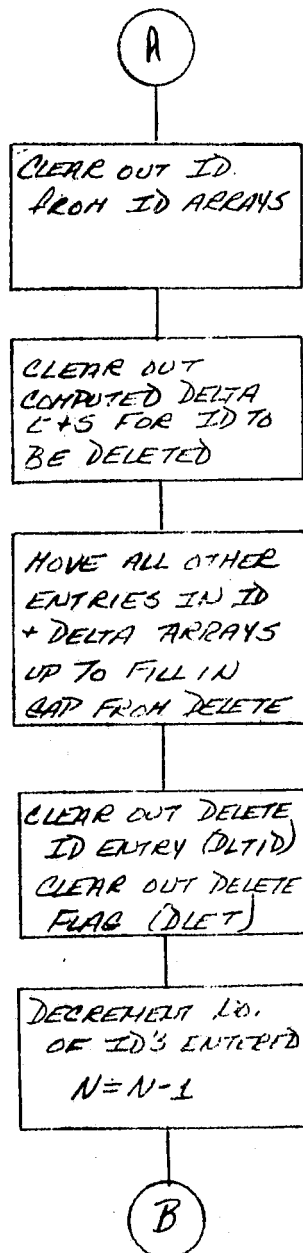 A
CLEAR OUT ID
FROM ID ARRAYS
CLEAR OUT
COMPUTED DELTA
L+S FOR ID TO
BE DELETED
MOVE ALL OTHER
ENTRIES IN ID
+ DELTA ARRAYS
UP TO FILL IN
GAP FROM DELETE
CLEAR OUT DELETE
ID ENTRY (DLTID)
CLEAR OUT DELETE
FLAG (DLET)
DECREMENT NO.
OF ID'S ENTERED
N=N-1
B